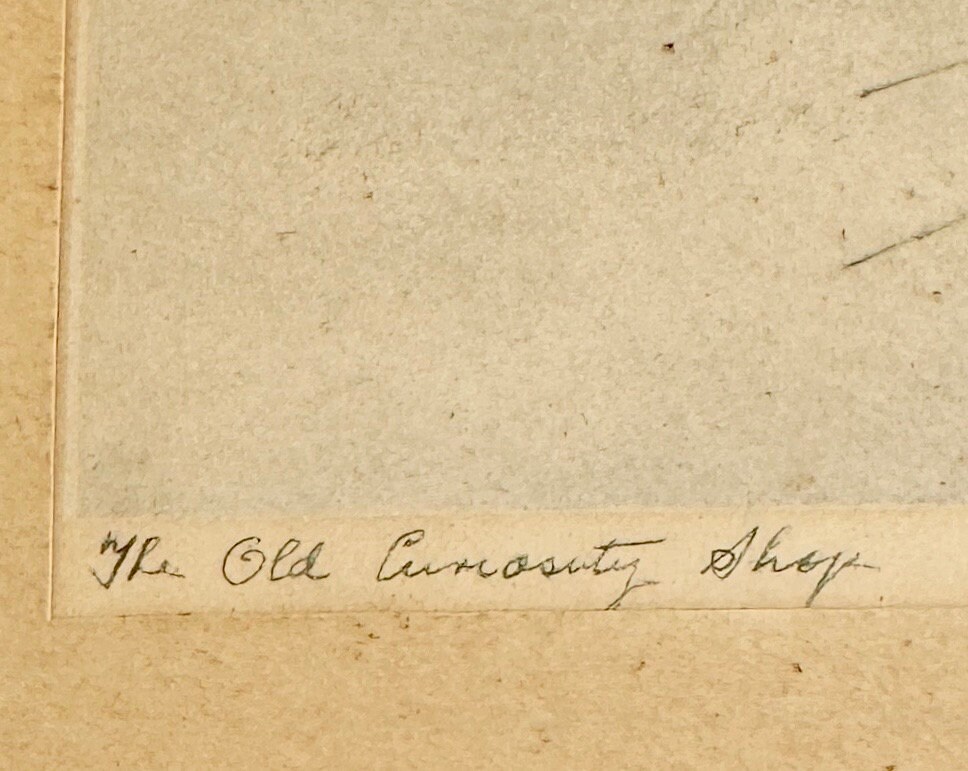 The Old Curiosity Shop